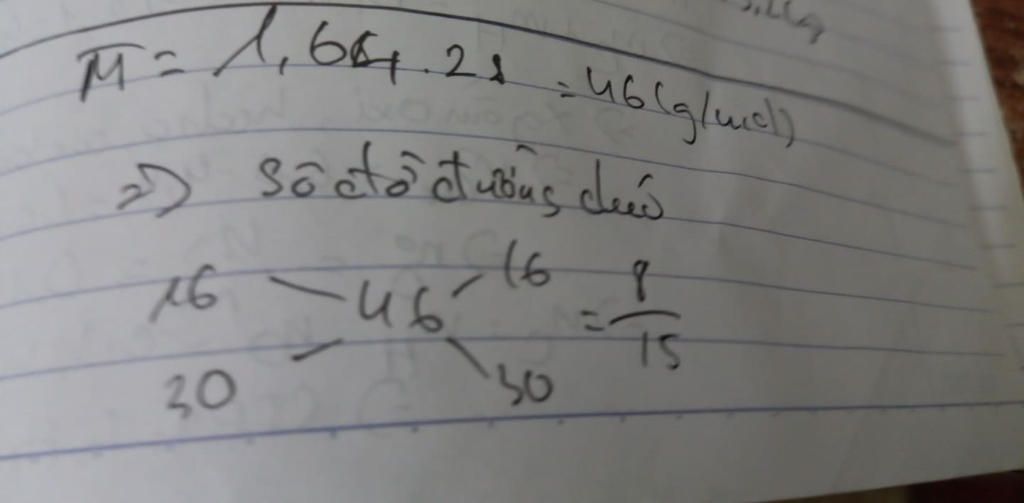 M̅ = 1,64.28 = 46 (g/mol)
=> Sơ đồ đường chéo
16 46 16 = 8/15
30 30